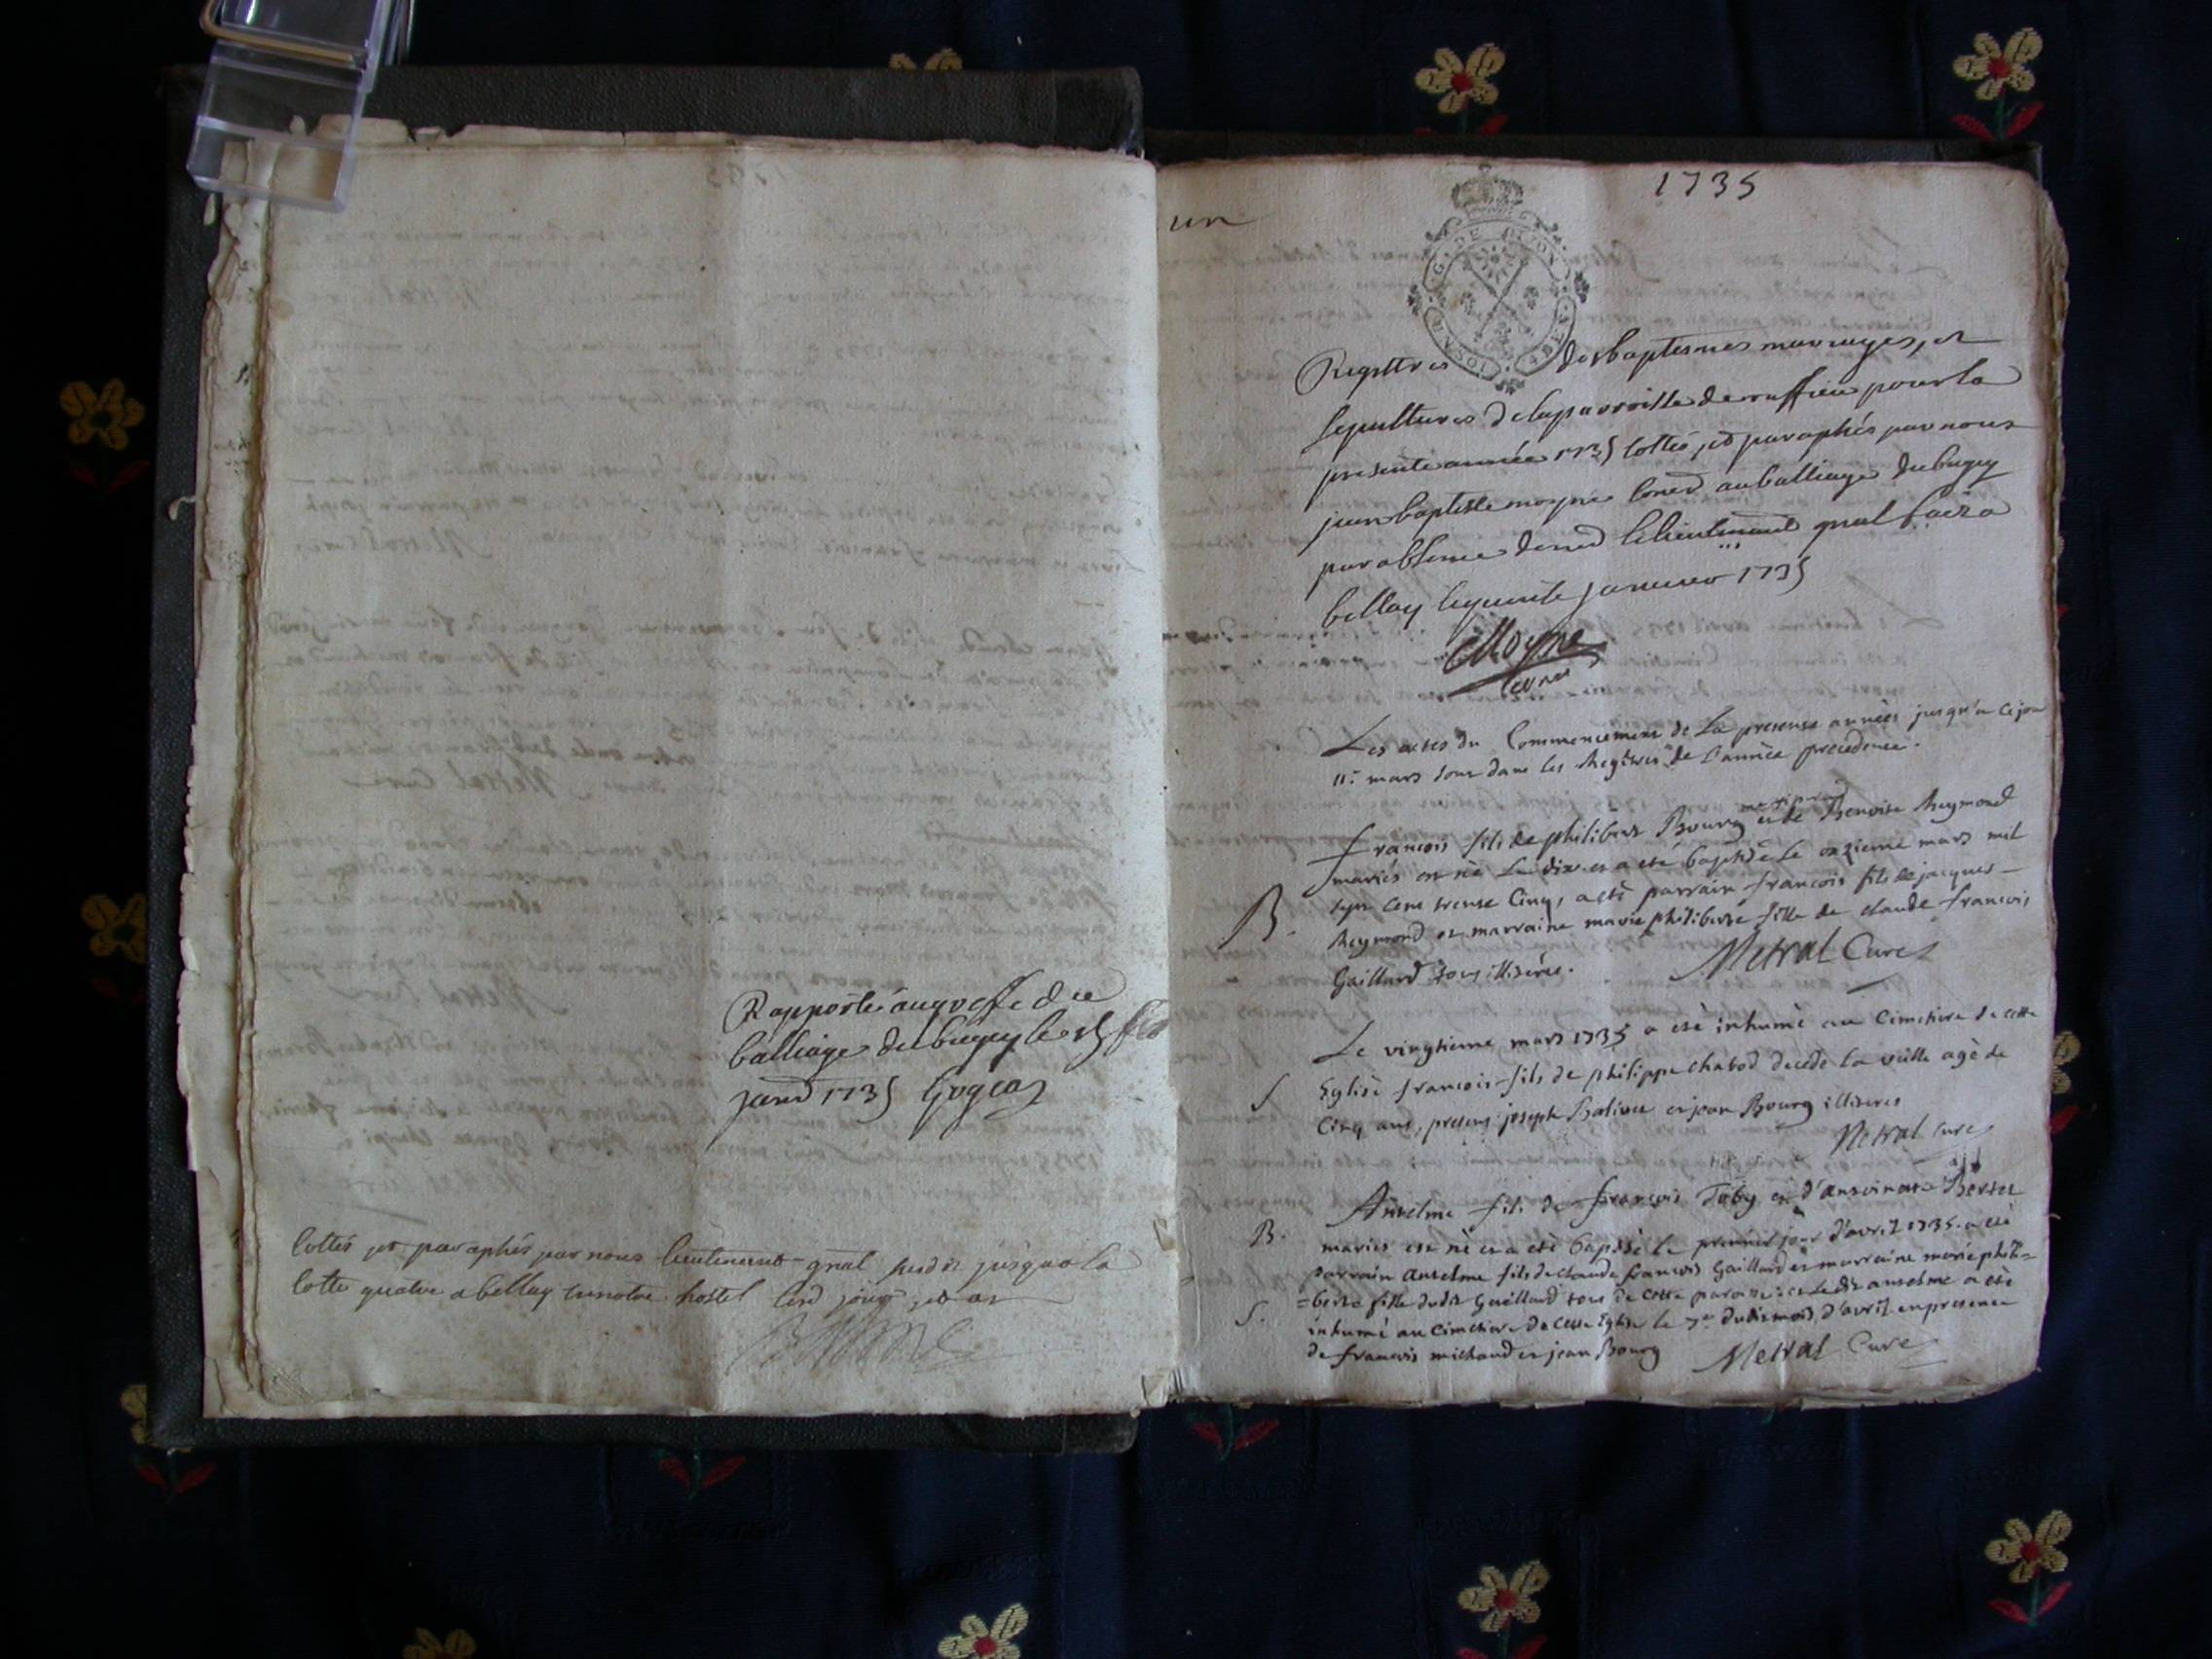 Rapporté au greffe du
balliage du bugey le
janv 1735
cottés et paraphés par nous lieutenant gnal susdit jusqua la
cotte quatre a belley en notre hostel lesd jour et an
un
1735
GEN DE DIJON
Registres des baptesmes mariages, et
sepultures de la parroisse de ruffieu pour la
presente année 1735 cottés, et paraphés par nous
jean baptiste moyne coner au balliage du bugey
par absence de mr le lieutenant gnal fait a
belley le janvier 1735
Moyne
Les actes du Commencement de La presente année jusqu'a ce jour
11e mars sont dans les Regtres de l'année precedente.
B.
francois fils de philibert Bourg et de Benoite Reymond
mariés est né Le dix et a eté baptisé le onzieme mars mil
sept cent trente cinq, a eté parrain francois fils de jacques
Reymond et marraine marie philiberte fille de claude francois
Gaillard tous illiterés.
Metral Curé
S
Le vingtieme mars 1735 a eté inhumé au Cimetiere de cette
Eglise francois fils de philippe chabod decedé la veille agé de
Cinq ans, presens joseph Balivet et jean Bourg illiterés
Metral curé
B.
Anselme fils de francois Toby et d'antoinette Bertet
mariés est né et a eté baptisé le premier jour d'avril 1735. a eté
parrain anselme fils de claude francois Gaillard et marraine marie phili=
=berte fille dudit Gaillard tous de cette paroisse: et Ledit anselme a eté
S.
inhumé au Cimetiere de cette Eglise le 7e dudit mois d'avril en presence
de francois michaud et jean Bourg
Metral Curé